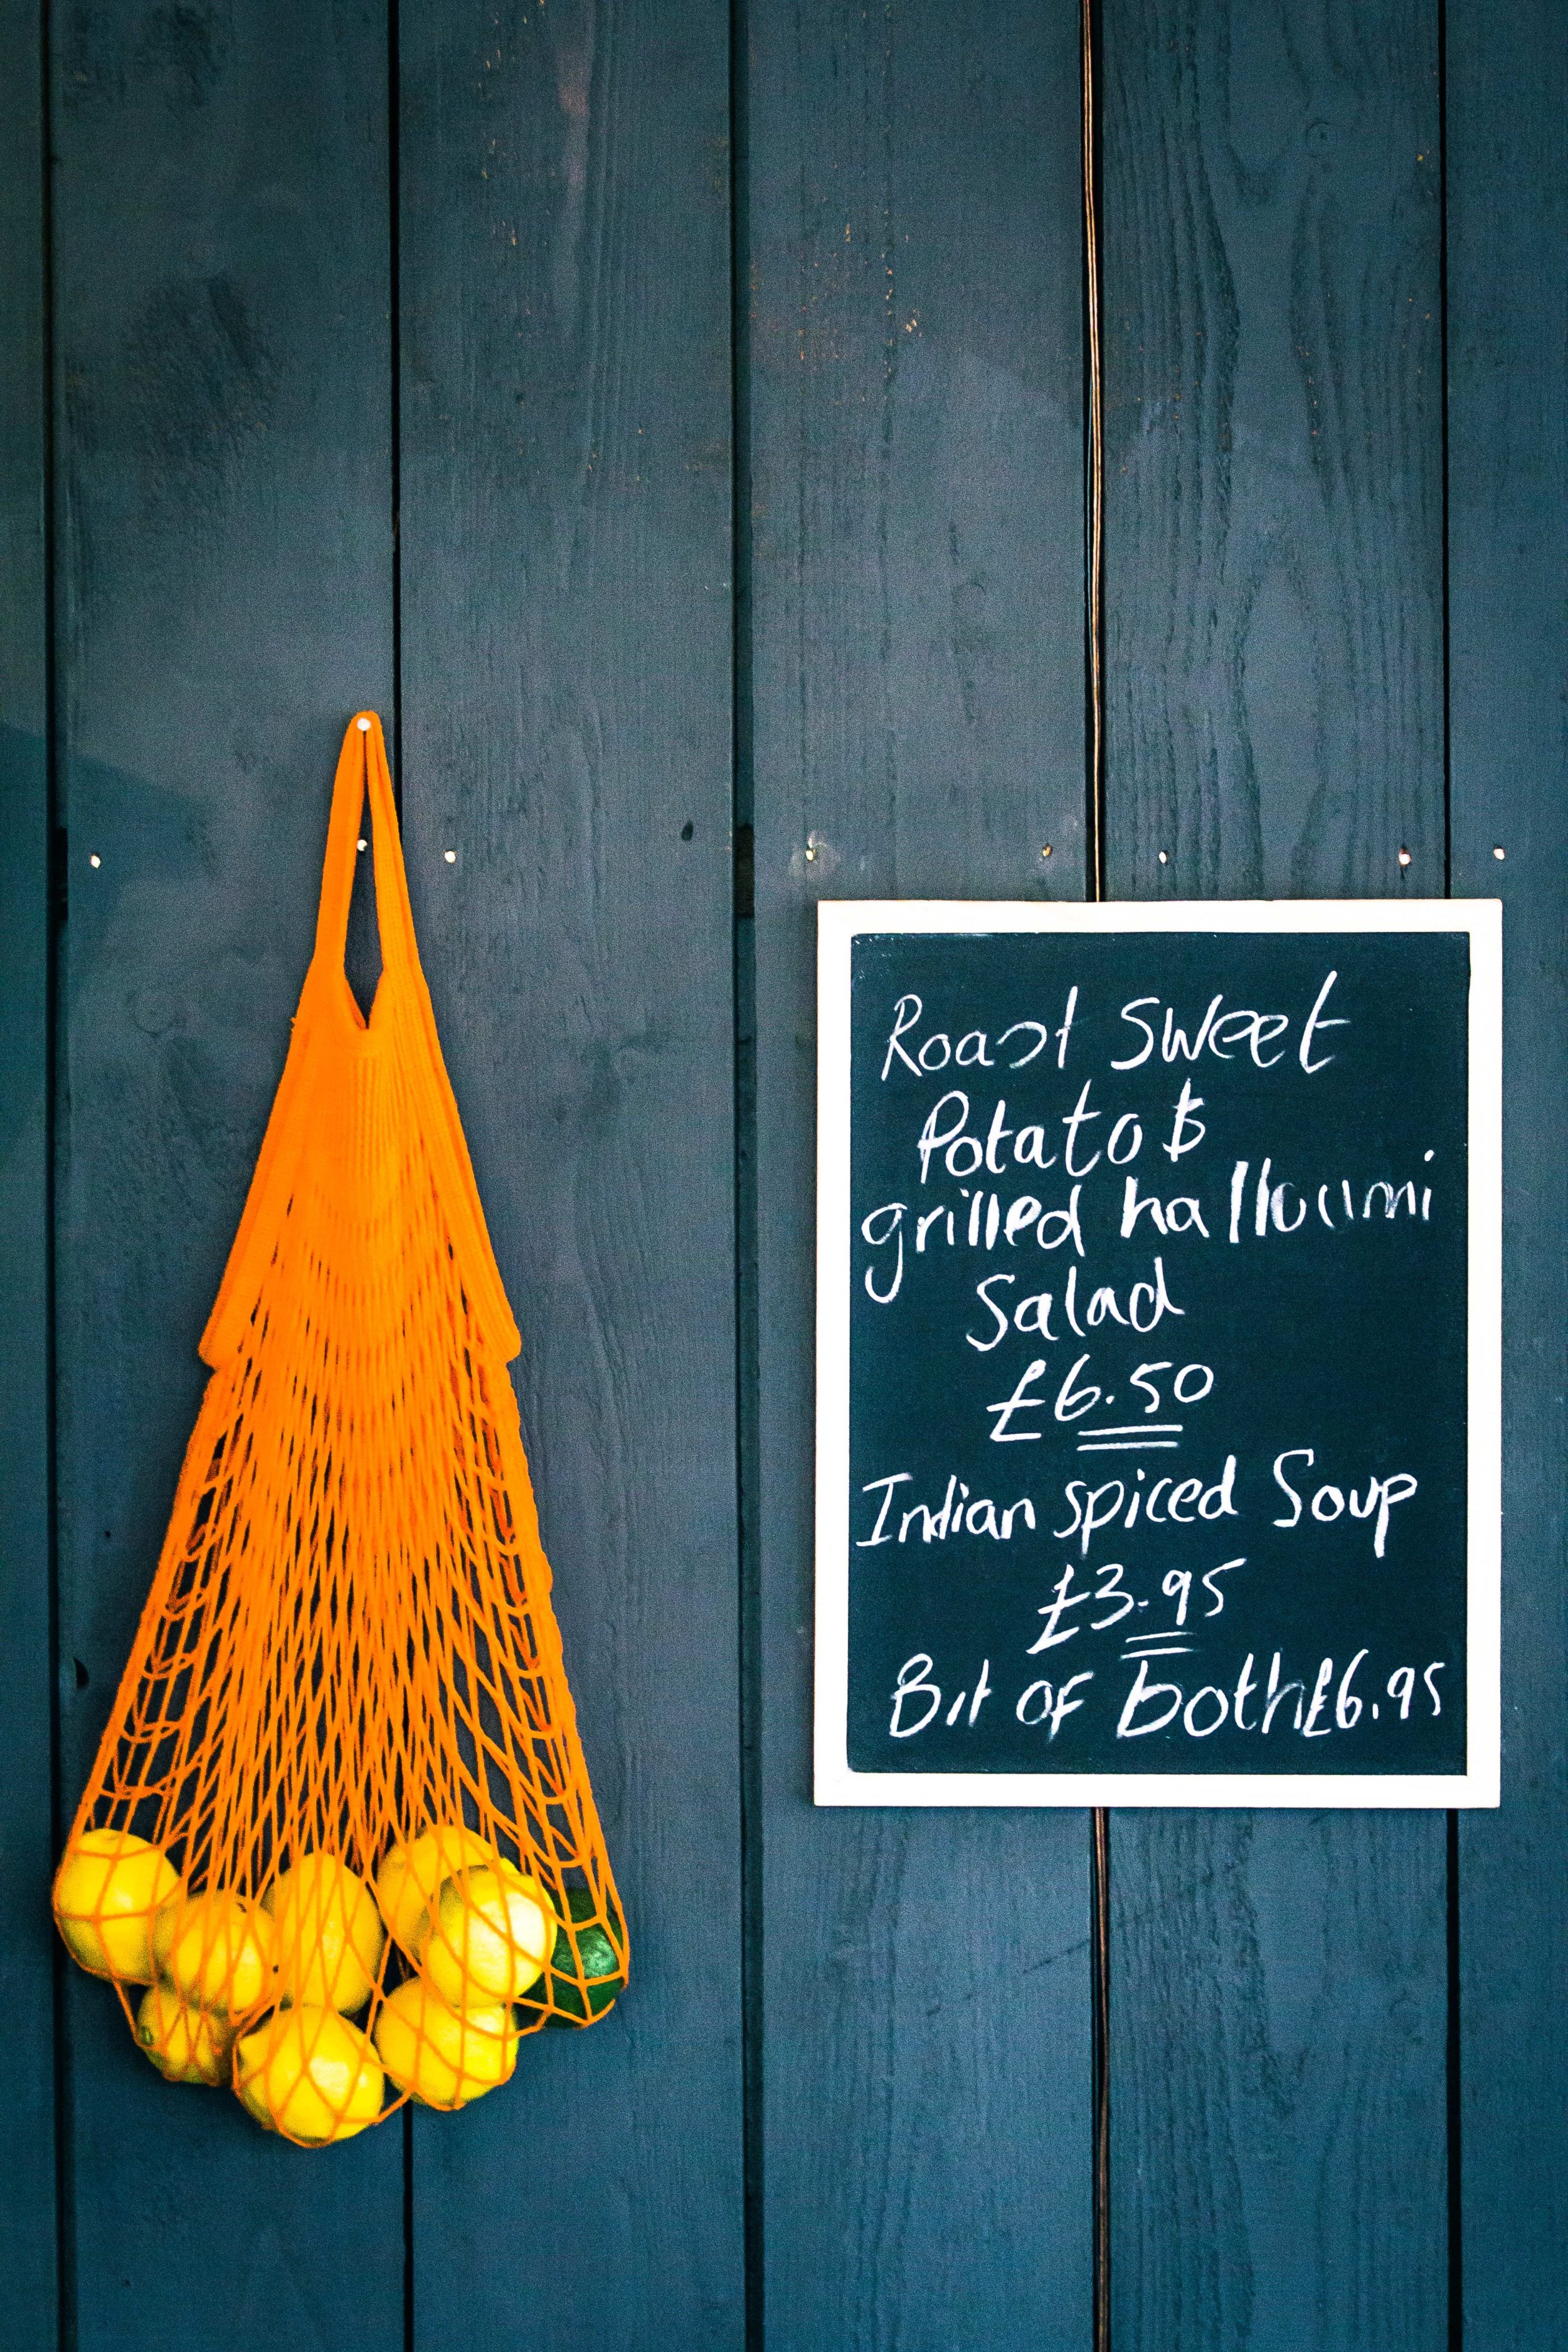 Roast Sweet
Potato &
grilled halloumi
Salad
£6.50
Indian spiced Soup
£3.95
Bit of both £6.95